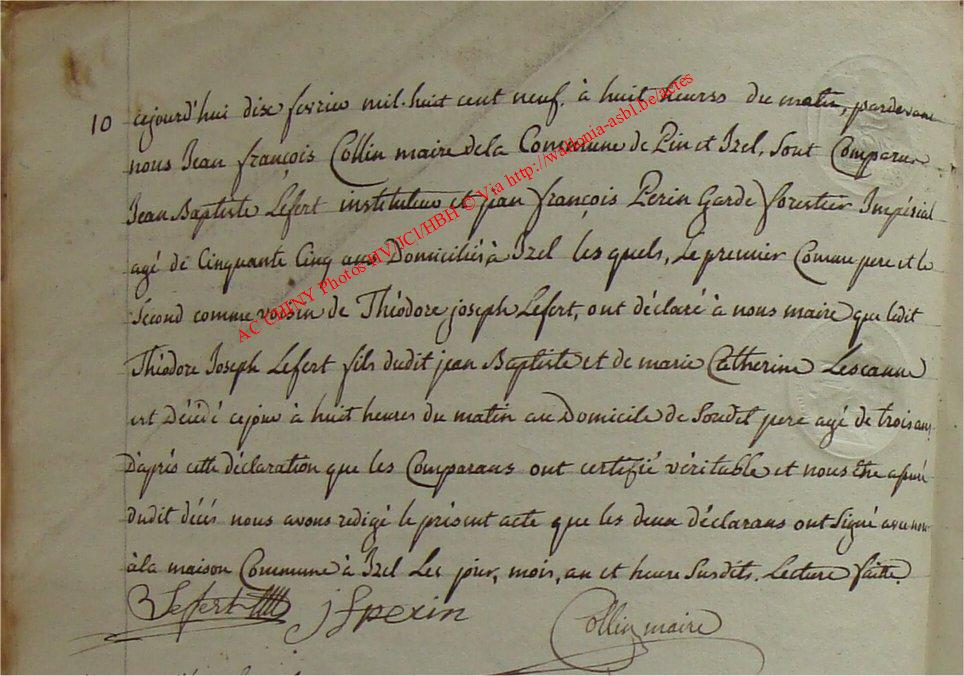 10 cejourd'hui dix fevrier mil-huit cent neuf. à huit heures du matin, pardevant
nous Jean françois Collin maire dela Commune de Pin et Izel, sont Comparus
Jean Baptiste Lefert instituteur et jean françois Perin Garde forestier Impérial
agé de Cinquante Cinq ans Domiciliés à Izel les quels, Le premier Comme pere et le
Second comme voisin de Théodore joseph Lefert, ont déclaré à nous maire que ledit
Théodore Joseph Lefert fils dudit jean Baptiste et de marie Catherine Lescanne
est Décédé cejour à huit heures du matin au Domicile de Sondit pere agé de trois ans,
D'après cette déclaration que les Comparans ont certifié véritable et nous être assuré
dudit décés nous avons redigé le présent acte que les deux déclarans ont Signé avec nous
à la maison Commune à Izel Les jour, mois, an et heure Susdits. Lecture faite.
Lefert jfperin Collin maire
AC CHINY Photos HV/JCl/HBH © Via http://wallonia-asbl.be/actes